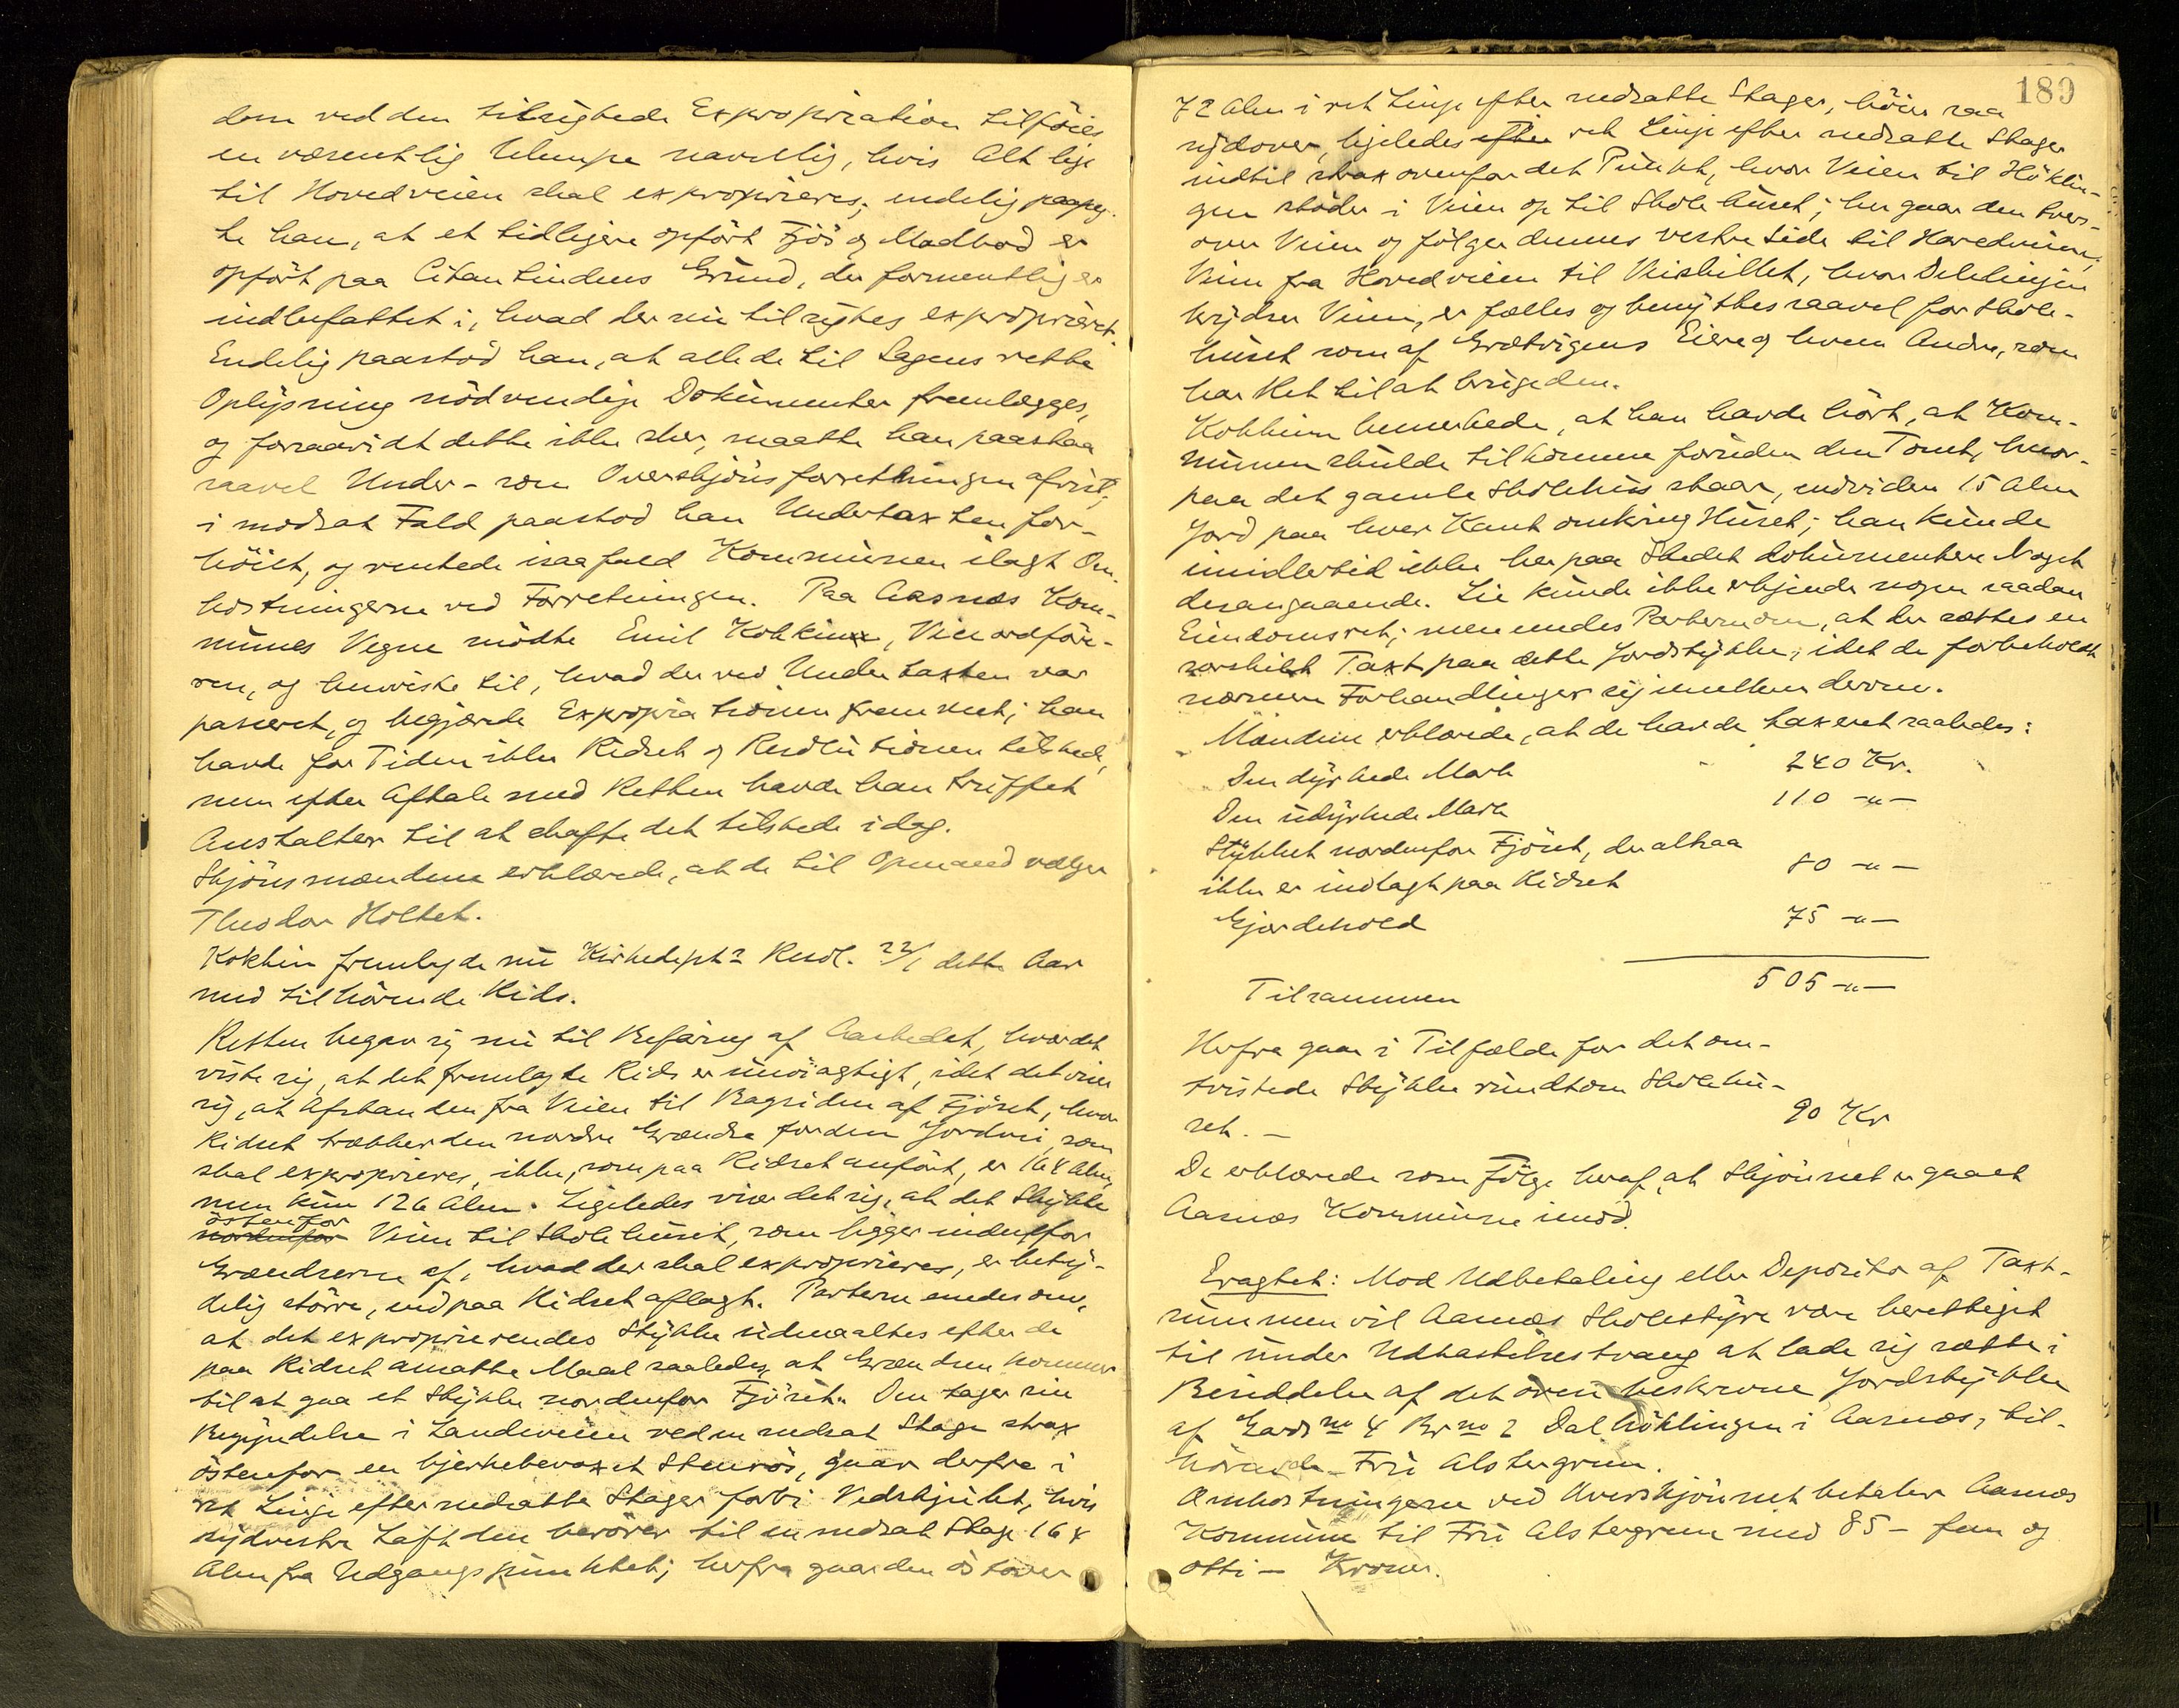 dom ved den tilsigtede Expropriation tilföies
en væsentlig Ulempe navnlig, hvis Alt lige
til Hovedveien skal exproprieres; endelig paapeg-
te han, at et tidligere opfört Fjös og Madbod er
opfört paa Citantindens Grund, der formentlig er
indbefattet i, hvad der nu tilsigtes exproprieret.
Endelig paastod han, at alle de til Sagens rette
Oplysning nödvendige Dokumenter fremlægges,
og forsaavidt dette ikke sker, maatte han paastaa
saavel Under- som Overskjönsforretningen afvist;
i modsat Fald paastod han Undertaxten for-
höiet, og ventede isaafald Kommunen ilagt Om-
kostningerne ved Forretningen. Paa Aasnæs Kom-
munes Vegne mödte Emil Kokkim, Viceordföre-
ren, og henviste til, hvad der ved Undertaxten var
passeret, og begjærede Expropriationen fremmet; han
havde for Tiden ikke Ridset og Resolutionen tilstede,
men efter Aftale med Retten havde han truffet
Anstalter til at skaffe det tilstede idag.
Skjönsmændene erklærede, at de til Opmand vælger
Theodor Holtet.
Kokkim fremlagde nu Kirkedepts Resol. 22/1 dette Aar
med tilhörende Rids.
Retten begav sig nu til Befaring af Aastedet, hvor det
viste sig, at det fremlagte Rids er unöiagtigt, idet det viser
sig, at Afstanden fra Veien til Bagsiden af Fjöset, hvor
Ridset trækker den nordre Grændse for den Jordvei, som
skal exproprieres, ikke, som paa Ridset anfört, er 164 Alen,
men kun 126 Alen. Ligeledes viser det sig, at det Stykke
östenfor
nordenfor Veien til Skolehuset, som ligger indenfor
Grændserne af, hvad der skal exproprieres, er bety-
delig större, end paa Ridset aflagt. Parterne enedes om,
at det exproprierendes Stykke udmaaltes efter de
paa Ridset ansatte Maal saaledes, at Grændsen kommer
til at gaa et Stykke nordenfor Fjöset. Den tager sin
Begyndelse i Landeveien ved en nedsat Stage strax
östenfor en bjerkebevoxet Stenrös, gaar derfra i
ret Linje efter nedsatte Stager forbi Vedskjulet, hvis
sydvestre Laft den berörer til en nedsat Stage 164
Alen fra Udgangspunktet; herfra gaar den östover
189
72 Alen i ret Linje efter nedsatte Stager, böier saa
sydover, ligeledes efter ret Linje efter nedsatte Stager
indtil strax ovenfor det Punkt, hvor Veien til Höklin-
gen stöder i Veien op til Skolehuset; her gaar den tvers-
over Veien og fölger dennes vestre Side til Hovedveien;
Veien fra Hovedveien til Veiskillet, hvor Delelinjen
krydser Veien, er fælles og benyttes saavel for Skole-
huset som af Grætvigens Eiere og hvem Andre, som
har Ret til at bruge den.
Kokkim bemerkede, at han havde hört, at Kom-
munen skulde tilkomme foruden den Tomt, hvor-
paa det gamle Skolehus staar, endvidere 15 Alen
Jord paa hver Kant omkring Huset; han kunde
imidlertid ikke her paa Stedet dokumentere Noget
desangaaende. Lie kunde ikke erkjende nogen saadan
Eiendomsret; men enedes Parterne om, at der sættes en
særskilt Taxt paa dette Jordstykke, idet de forbeholdt
nærmere Forhandlinger sig imellem derom.
Mændene erklærede, at de havde taxeret saaledes:
Den dyrkede Mark 240 Kr.
Den udyrkede Mark 110 -"-
Stykket nordenfor Fjöset, der altsaa
ikke er indlagt paa Ridset 80 -"-
Gjerdehold 75 -"-
Tilsammen 505 -"-
Herfra gaar i Tilfælde for det om-
tvistede Stykke rundtom Skolehu-
set. - 90 Kr
De erklærede som Fölge heraf, at Skjönnet er gaaet
Aasnæs Kommune imod.
Eragtet: Mod Udbetaling eller Deposito af Taxt-
summen vil Aasnæs Skolestyre være berettiget
til under Udkastelsestvang at lade sig sætte i
Besiddelse af det oven beskrevne Jordstykke
af Gards no 4 Br no 2 Dal Höklingen i Aasnæs, til-
hörende Fru Alstergren.
Omkostningerne ved Overskjönnet betaler Aasnæs
Kommune til Fru Alstergren med 85 - fem og
otti - Kroner.